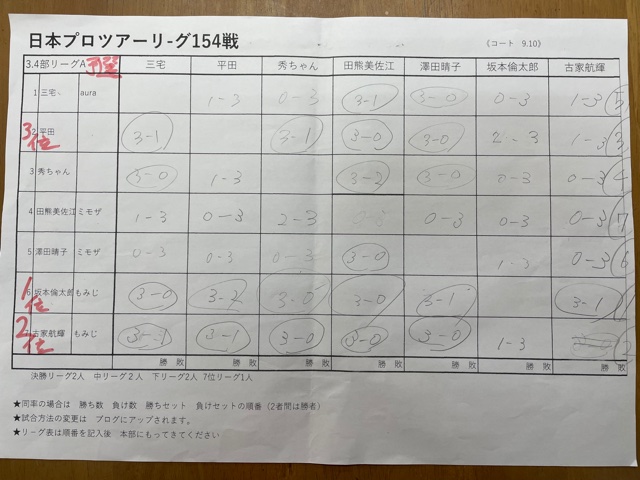 日本プロツアーリ-グ154戦 《コート 9.10》
3.4部リーグA 予選 三宅 平田 秀ちゃん 田熊美佐江 澤田晴子 坂本倫太郎 古家航輝
1 三宅 aura 1-3 0-3 3-1 3-0 0-3 1-3 5
3位 2 平田 3-1 3-1 3-0 3-0 2-3 1-3 3
3 秀ちゃん 3-0 1-3 3-2 3-0 0-3 0-3 4
4 田熊美佐江 ミモザ 1-3 0-3 2-3 0-3 0-3 0-3 7
5 澤田晴子 ミモザ 0-3 0-3 0-3 3-0 1-3 0-3 6
1位 6 坂本倫太郎 もみじ 3-0 3-2 3-0 3-0 3-1 3-1
2位 古家航輝 もみじ 3-1 3-1 3-0 3-0 3-0 1-3 2
勝 敗 勝 敗 勝 敗 勝 敗 勝 敗 勝 敗 勝 敗
決勝リーグ2人 中リーグ2人 下リーグ2人 7位リーグ1人
★同率の場合は 勝ち数 負け数 勝ちセット 負けセットの順番（2者間は勝者）
★試合方法の変更は ブログにアップされます。
★リーグ表は順番を記入後 本部にもってきてください